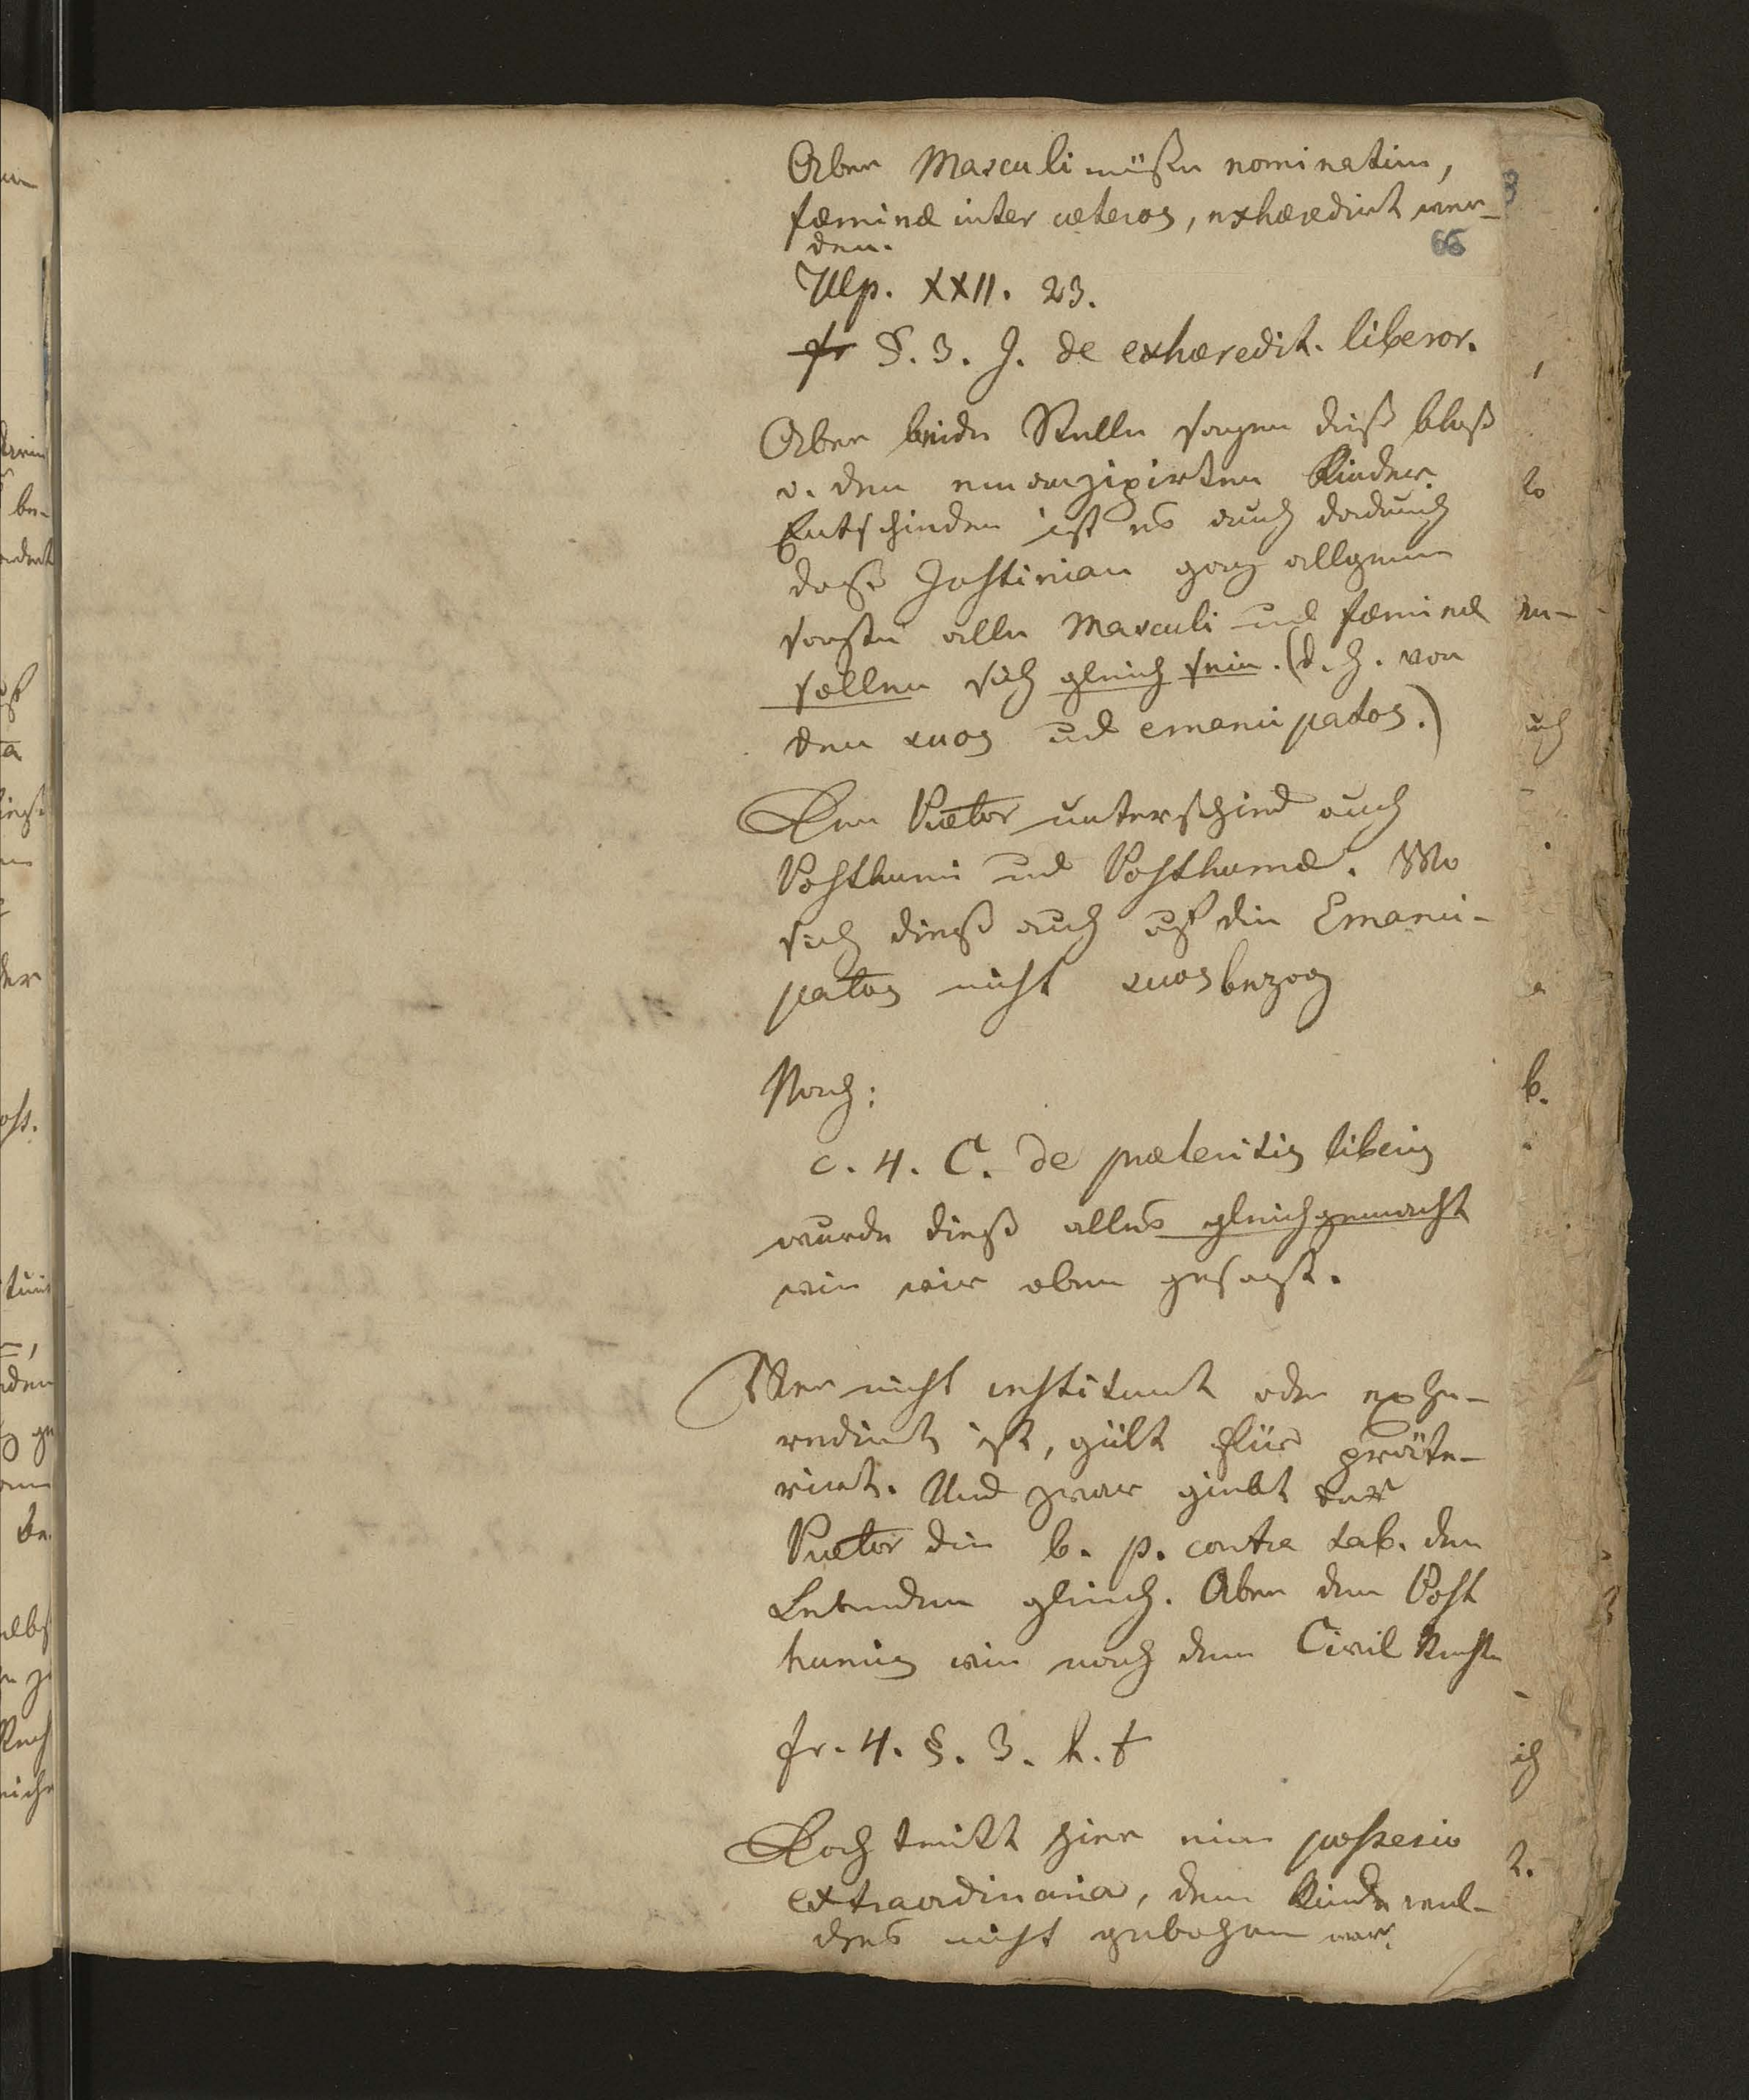 Aber Masculi müßen nominatim,
fæminæ inter cæteros, exhæredirt wer-
den.
66
Ulp. XXII. 23.
fr §. 3. J. de exhæredit. liberor.
Aber beide Stelle sagen dieß bloß
v. den emanzipirten Kinder.
Entschieden ist es auch dadurch
daß Justinian ganz allgemein
sagte alle Masculi und fæminæ
sollen sich gleich sein. (d. h. von
den suos und emancipatos.)
Der Prætor unterschied auch
Posthumi und Posthumæ. Wo
sich dieß auch auf die Emanci-
patos nicht suos bezog
Nach:
c. 4. C. de præteritis liberis
wurde dieß alles gleichgemacht
wie wir oben gesagt.
Wer nicht instituirt oder exhe-
redirt ist, gült für präte-
rirt. Und zwar giebt der
Prætor die b. p. contra tab. den
Lebenden gleich. Aber den Post
humis wie nach dem Civil Rechte
fr. 4. §. 3. h. t
Doch tritt hier eine possessio
extraordinaria, dem Kinde wel-
ches nicht gebohren war.